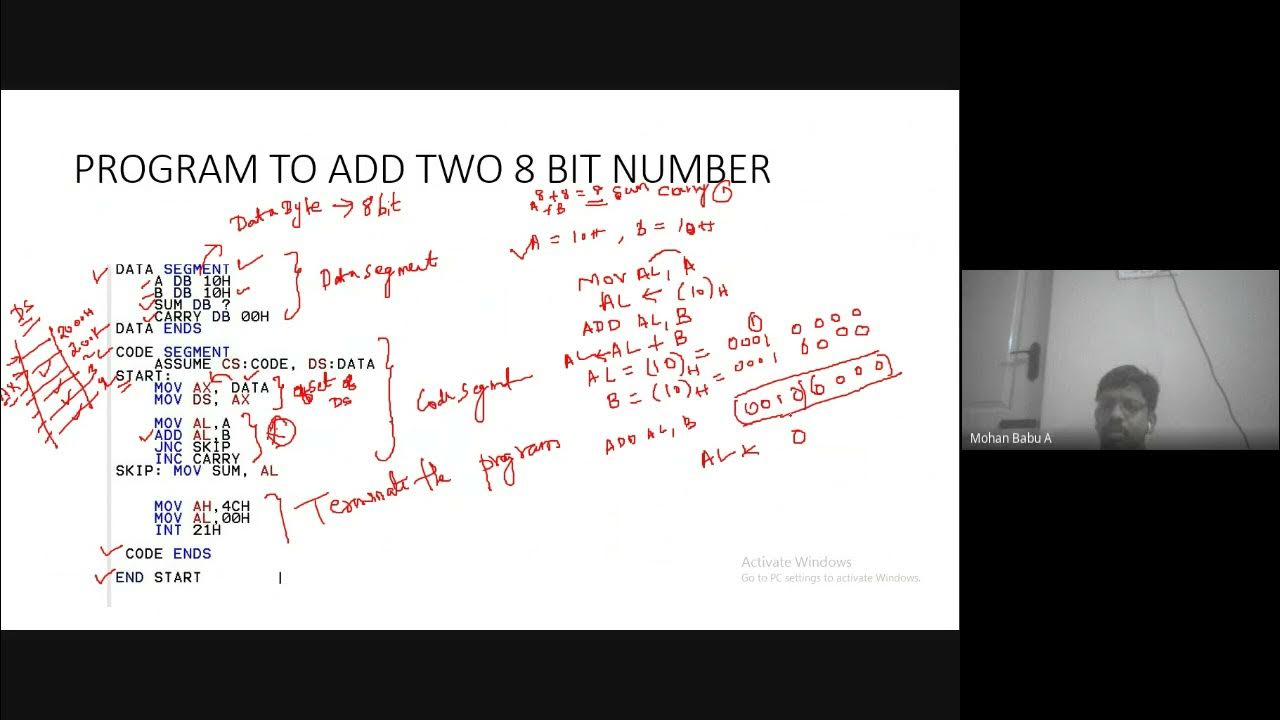 PROGRAM TO ADD TWO 8 BIT NUMBER
8+8 = 8 sum carry 1
A+B
Data Byte → 8 bit
A = 10H , B = 10H
DATA SEGMENT
A DB 10H
B DB 10H
SUM DB ?
CARRY DB 00H
DATA ENDS
Data segment
CODE SEGMENT
ASSUME CS:CODE, DS:DATA
START:
MOV AX, DATA
MOV DS, AX
MOV AL,A
ADD AL,B
JNC SKIP
INC CARRY
SKIP: MOV SUM, AL
MOV AH,4CH
MOV AL,00H
INT 21H
CODE ENDS
END START
DS
2000H
DS
Code segment
Terminate the program
MOV AL, A
AL ← (10)H
ADD AL, B
AL ← AL + B
AL = (10)H = 0001 0000
B = (10)H = 0001 0000
0010 0000
ADD AL, B
AL
0
Activate Windows
Go to PC settings to activate Windows.
Mohan Babu A